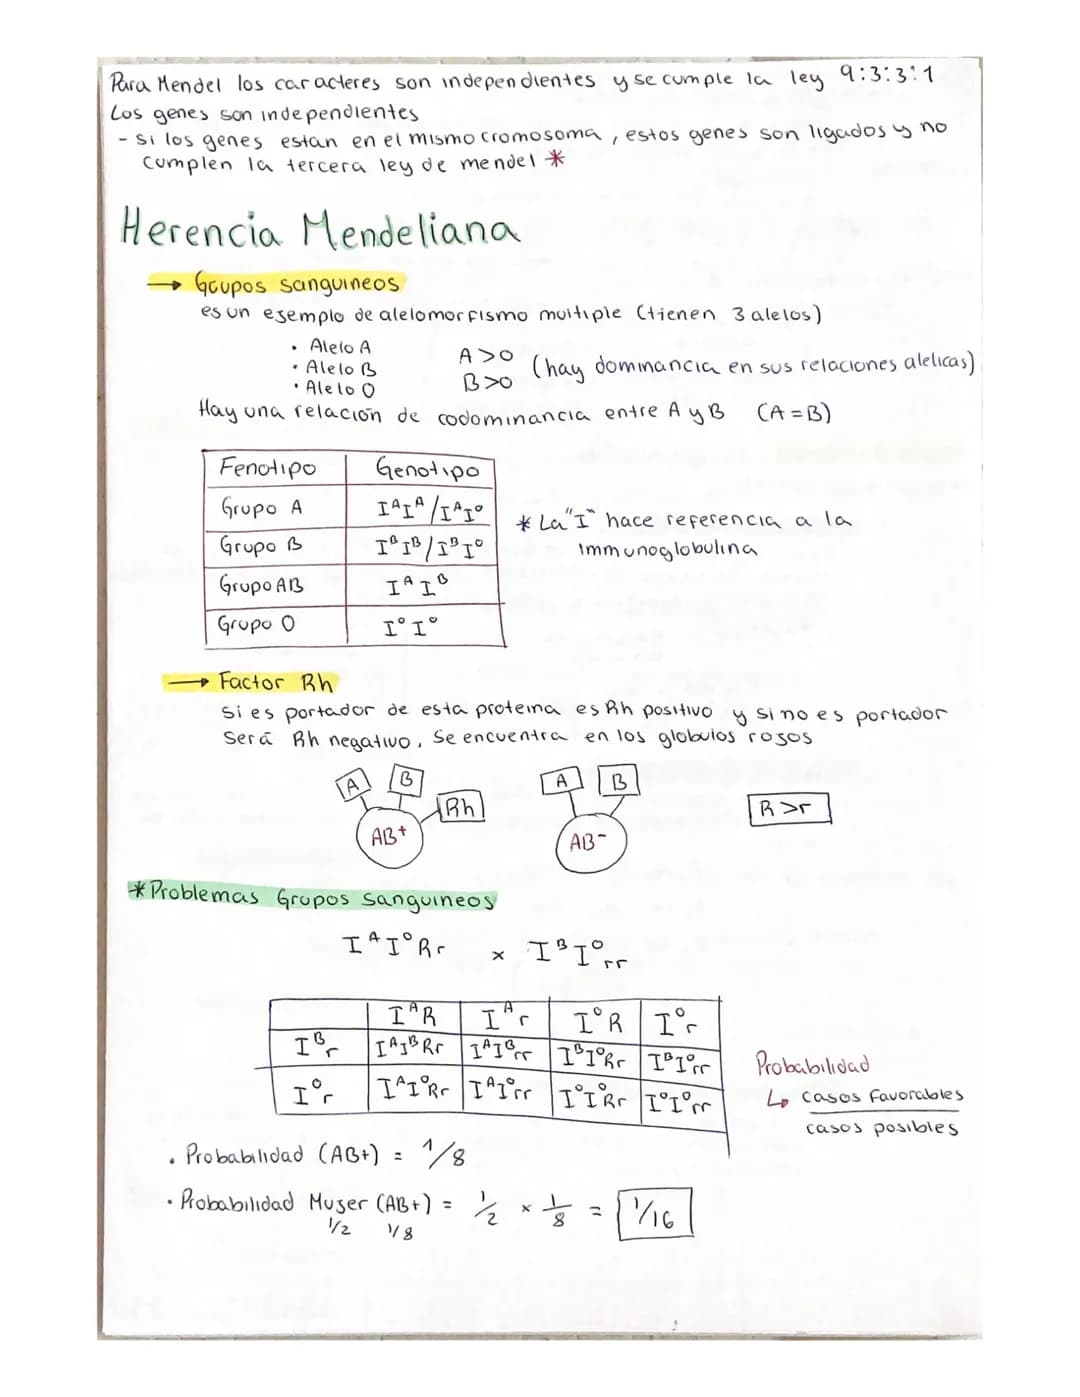 Para Mendel los caracteres son independientes y se cumple la ley 9:3:3:1
Los genes son independientes
- Si los genes estan en el mismo cromosoma, estos genes son ligados y no
cumplen la tercera ley de mendel *
Herencia Mendeliana
→ Grupos sanguineos
es un ejemplo de alelomorfismo multiple (tienen 3 alelos)
• Alelo A
• Alelo B
• Alelo O
A>O
B>O
(hay dominancia en sus relaciones alelicas)
Hay una relación de codominancia entre A y B (A=B)
Fenotipo Genotipo
Grupo A IᴬIᴬ/IᴬI°
Grupo B IᴮIᴮ/IᴮI°
Grupo AB IᴬIᴮ
Grupo O I°I°
* La "I" hace referencia a la
immunoglobulina
→ Factor Rh
Si es portador de esta proteina es Rh positivo y si no es portador
Será Rh negativo. Se encuentra en los globulos rojos
A B Rh
AB+
A B
AB-
R>r
*Problemas Grupos sanguineos
IᴬI°Rr x IᴮI°rr
IᴬR Iᴬr I°R I°r
Iᴮr IᴬIᴮRr IᴬIᴮrr IᴮI°Rr IᴮI°rr
I°r IᴬI°Rr IᴬI°rr I°I°Rr I°I°rr
Probabilidad
↳ casos Favorables
casos posibles
• Probabilidad (AB+) = 1/8
• Probabilidad Mujer (AB+) = 1/2 x 1/8 = 1/16
1/2 1/8